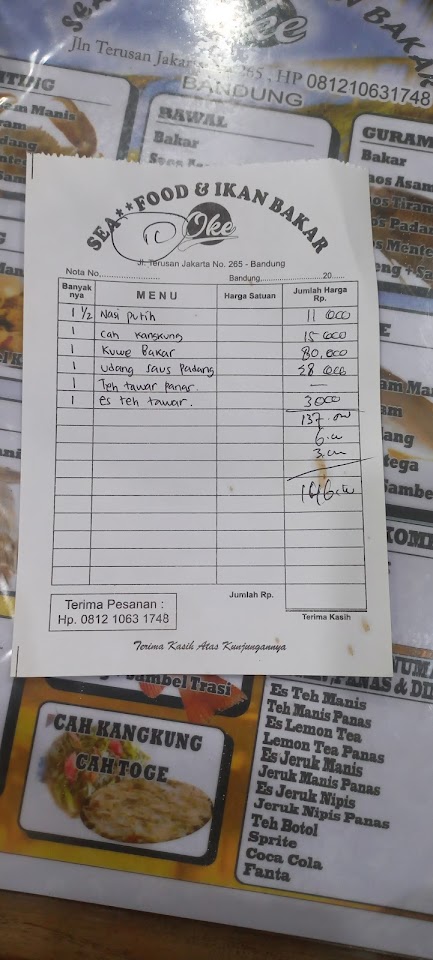 SEA
IKAN BAKAR
Oke
Jln Terusan Jakar 265 , HP 081210631748
BANDUNG
BAWAL
Bakar
GURAM
Bakar
SEA**FOOD & IKAN BAKAR
Oke
10
Jl. Terusan Jakarta No. 265 - Bandung
Nota No,........................ Bandung,........................ 20.....
Banyak nya MENU Harga Satuan Jumlah Harga Rp.
1 1/2 Nasi putih 11 000
1 cah kangkung 15 000
1 Kuwe Bakar 80.000
1 udang saus padang 28 000
1 Teh tawar panas. —
1 es teh tawar. 3000
137.000
6.000
3.000
146.000
Jumlah Rp.
Terima Pesanan :
Hp. 0812 1063 1748
Terima Kasih
Terima Kasih Atas Kunjungannya
Sambel Trasi
CAH KANGKUNG
CAH TOGE
PANAS & DI
Es Teh Manis
Teh Manis Panas
Es Lemon Tea
Lemon Tea Panas
Es Jeruk Manis
Jeruk Manis Panas
Es Jeruk Nipis
Jeruk Nipis Panas
Teh Botol
Sprite
Coca Cola
Fanta